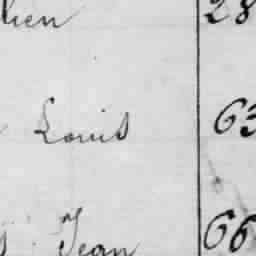 28
Louis 63
Jean 66